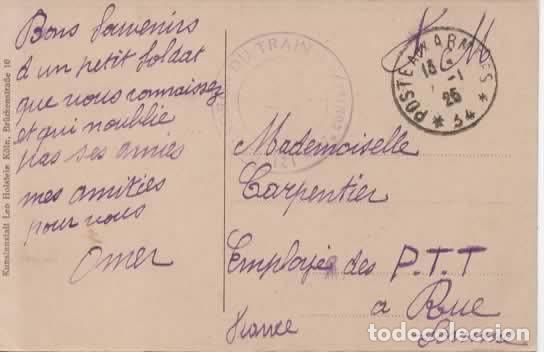 Kunstanstalt Leo Holstein Köln, Brückenstraße 10
Bons Souvenirs
d un petit Soldat
que vous connaissez
et qui noublie
pas ses amies
mes amitiés
pour vous
Omer
DU TRAIN
F. M
POSTE AUX ARMEES
13
-1
25
* 34 *
Mademoiselle
Carpentier
Employée des P.T.T
a Rue
Somme
France
todocoleccion